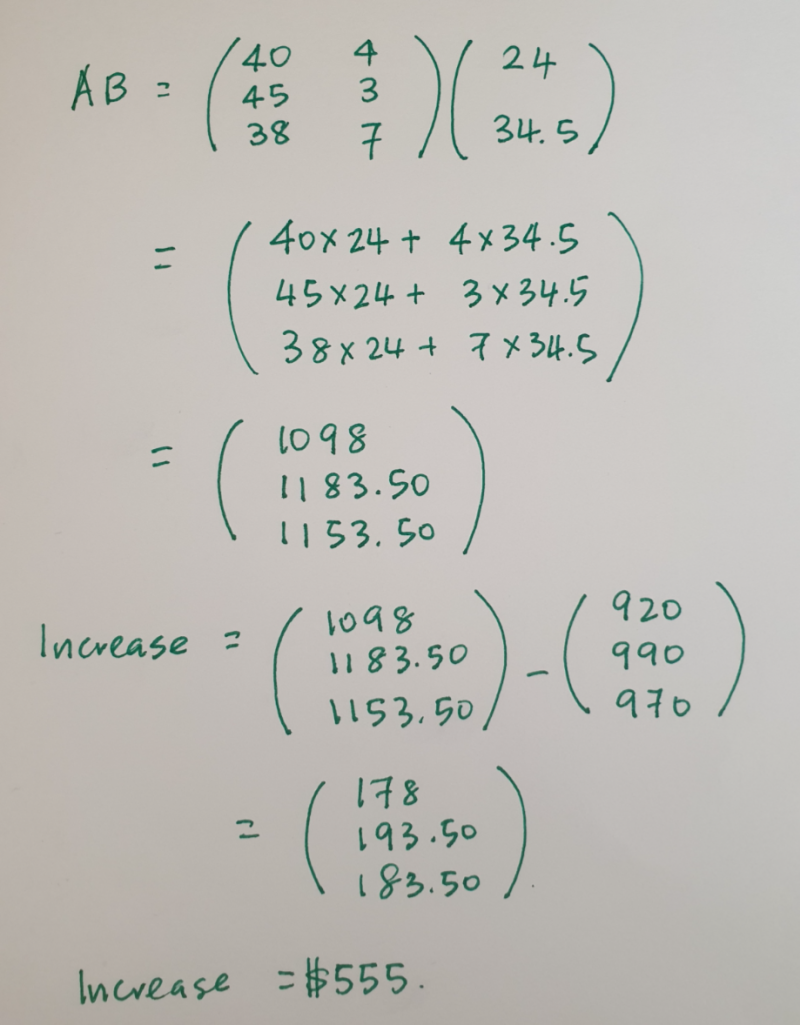 AB = ( 40 4 ) ( 24 )
45 3
38 7 34.5
= ( 40×24 + 4×34.5 )
45×24 + 3×34.5
38×24 + 7×34.5
= ( 1098 )
1183.50
1153.50
Increase = ( 1098 ) - ( 920 )
1183.50 990
1153.50 970
= ( 178 )
193.50
183.50
Increase = $555.